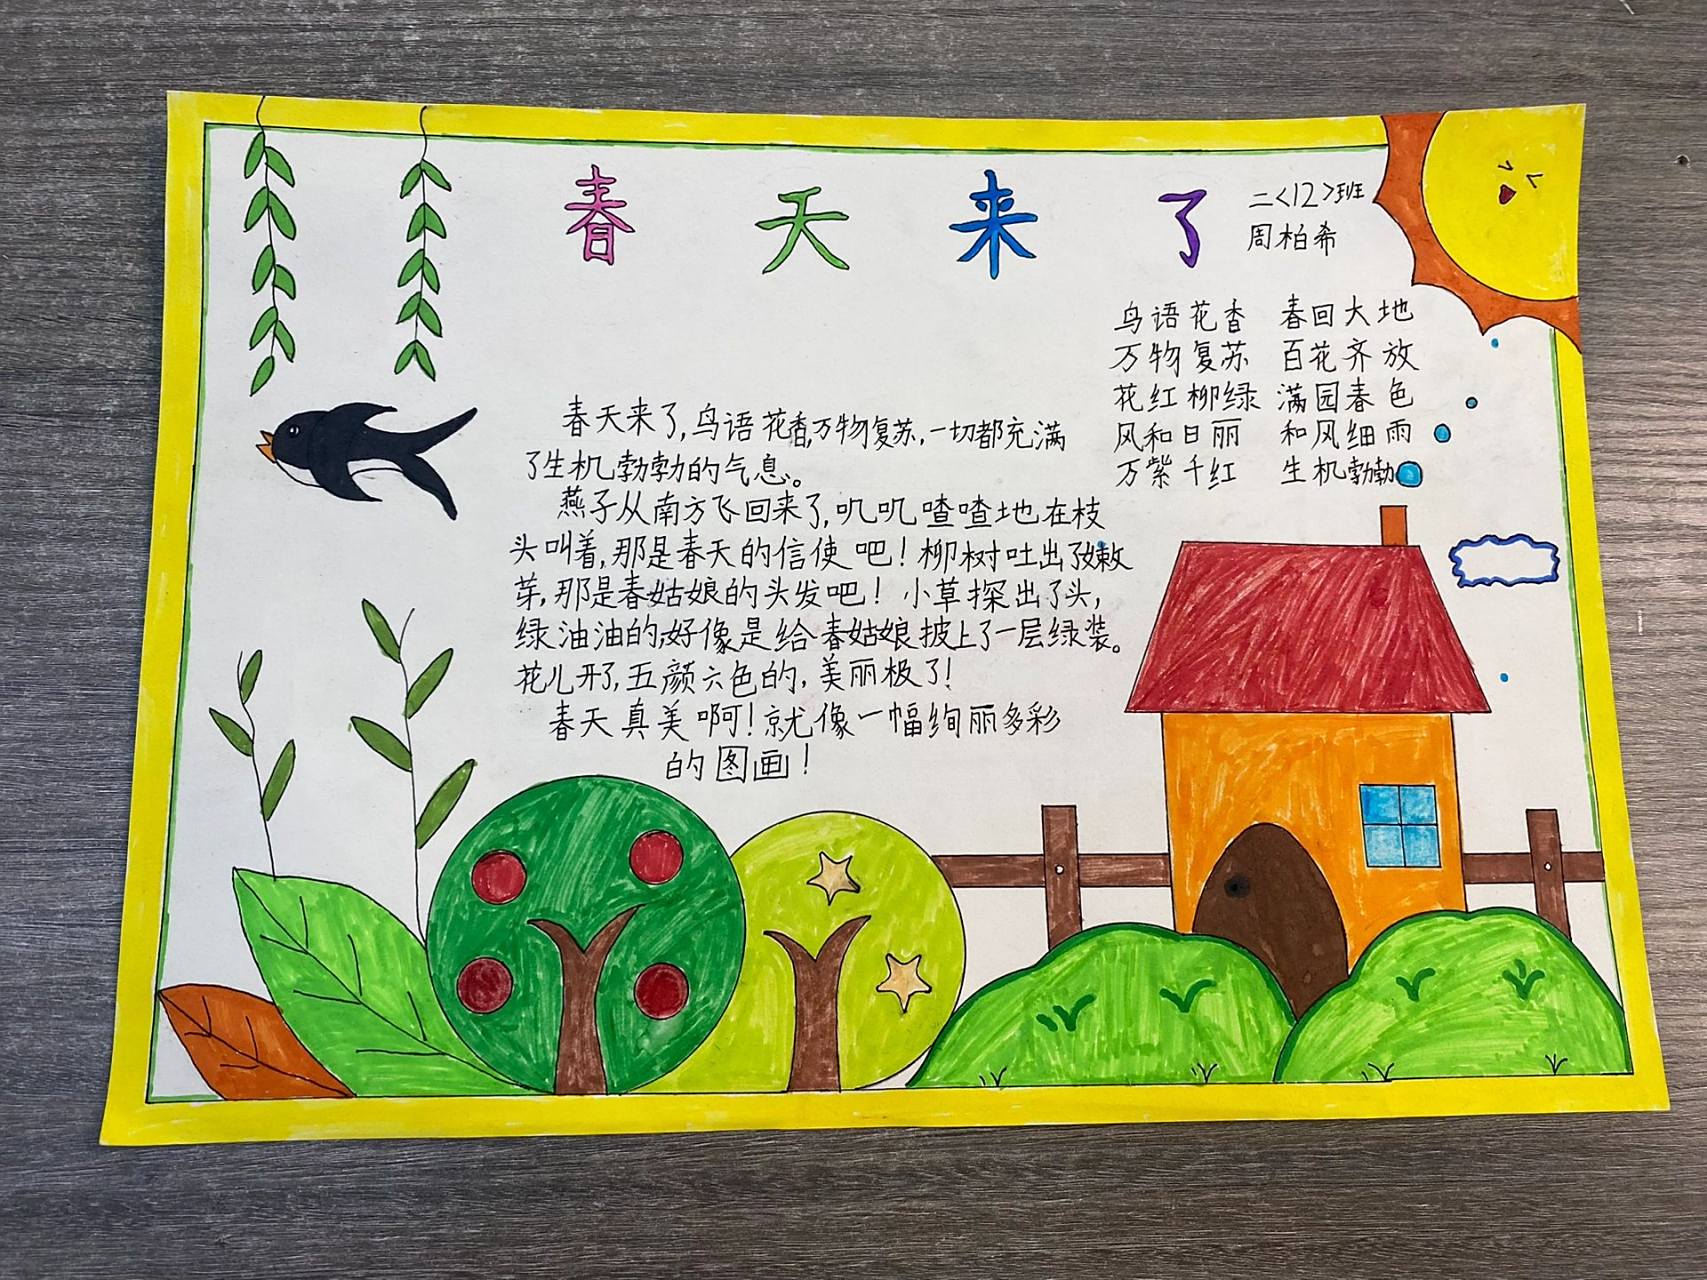 春天来了
二<12>班
周柏希
鸟语花香 春回大地
万物复苏 百花齐放
花红柳绿 满园春色
风和日丽 和风细雨
万紫千红 生机勃勃
春天来了,鸟语花香,万物复苏,一切都充满
了生机勃勃的气息。
燕子从南方飞回来了,叽叽喳喳地在枝
头叫着,那是春天的信使吧!柳树吐出了嫩
芽,那是春姑娘的头发吧!小草探出了头,
绿油油的好像是给春姑娘披上了一层绿装。
花儿开了,五颜六色的,美丽极了!
春天真美啊!就像一幅绚丽多彩
的图画!